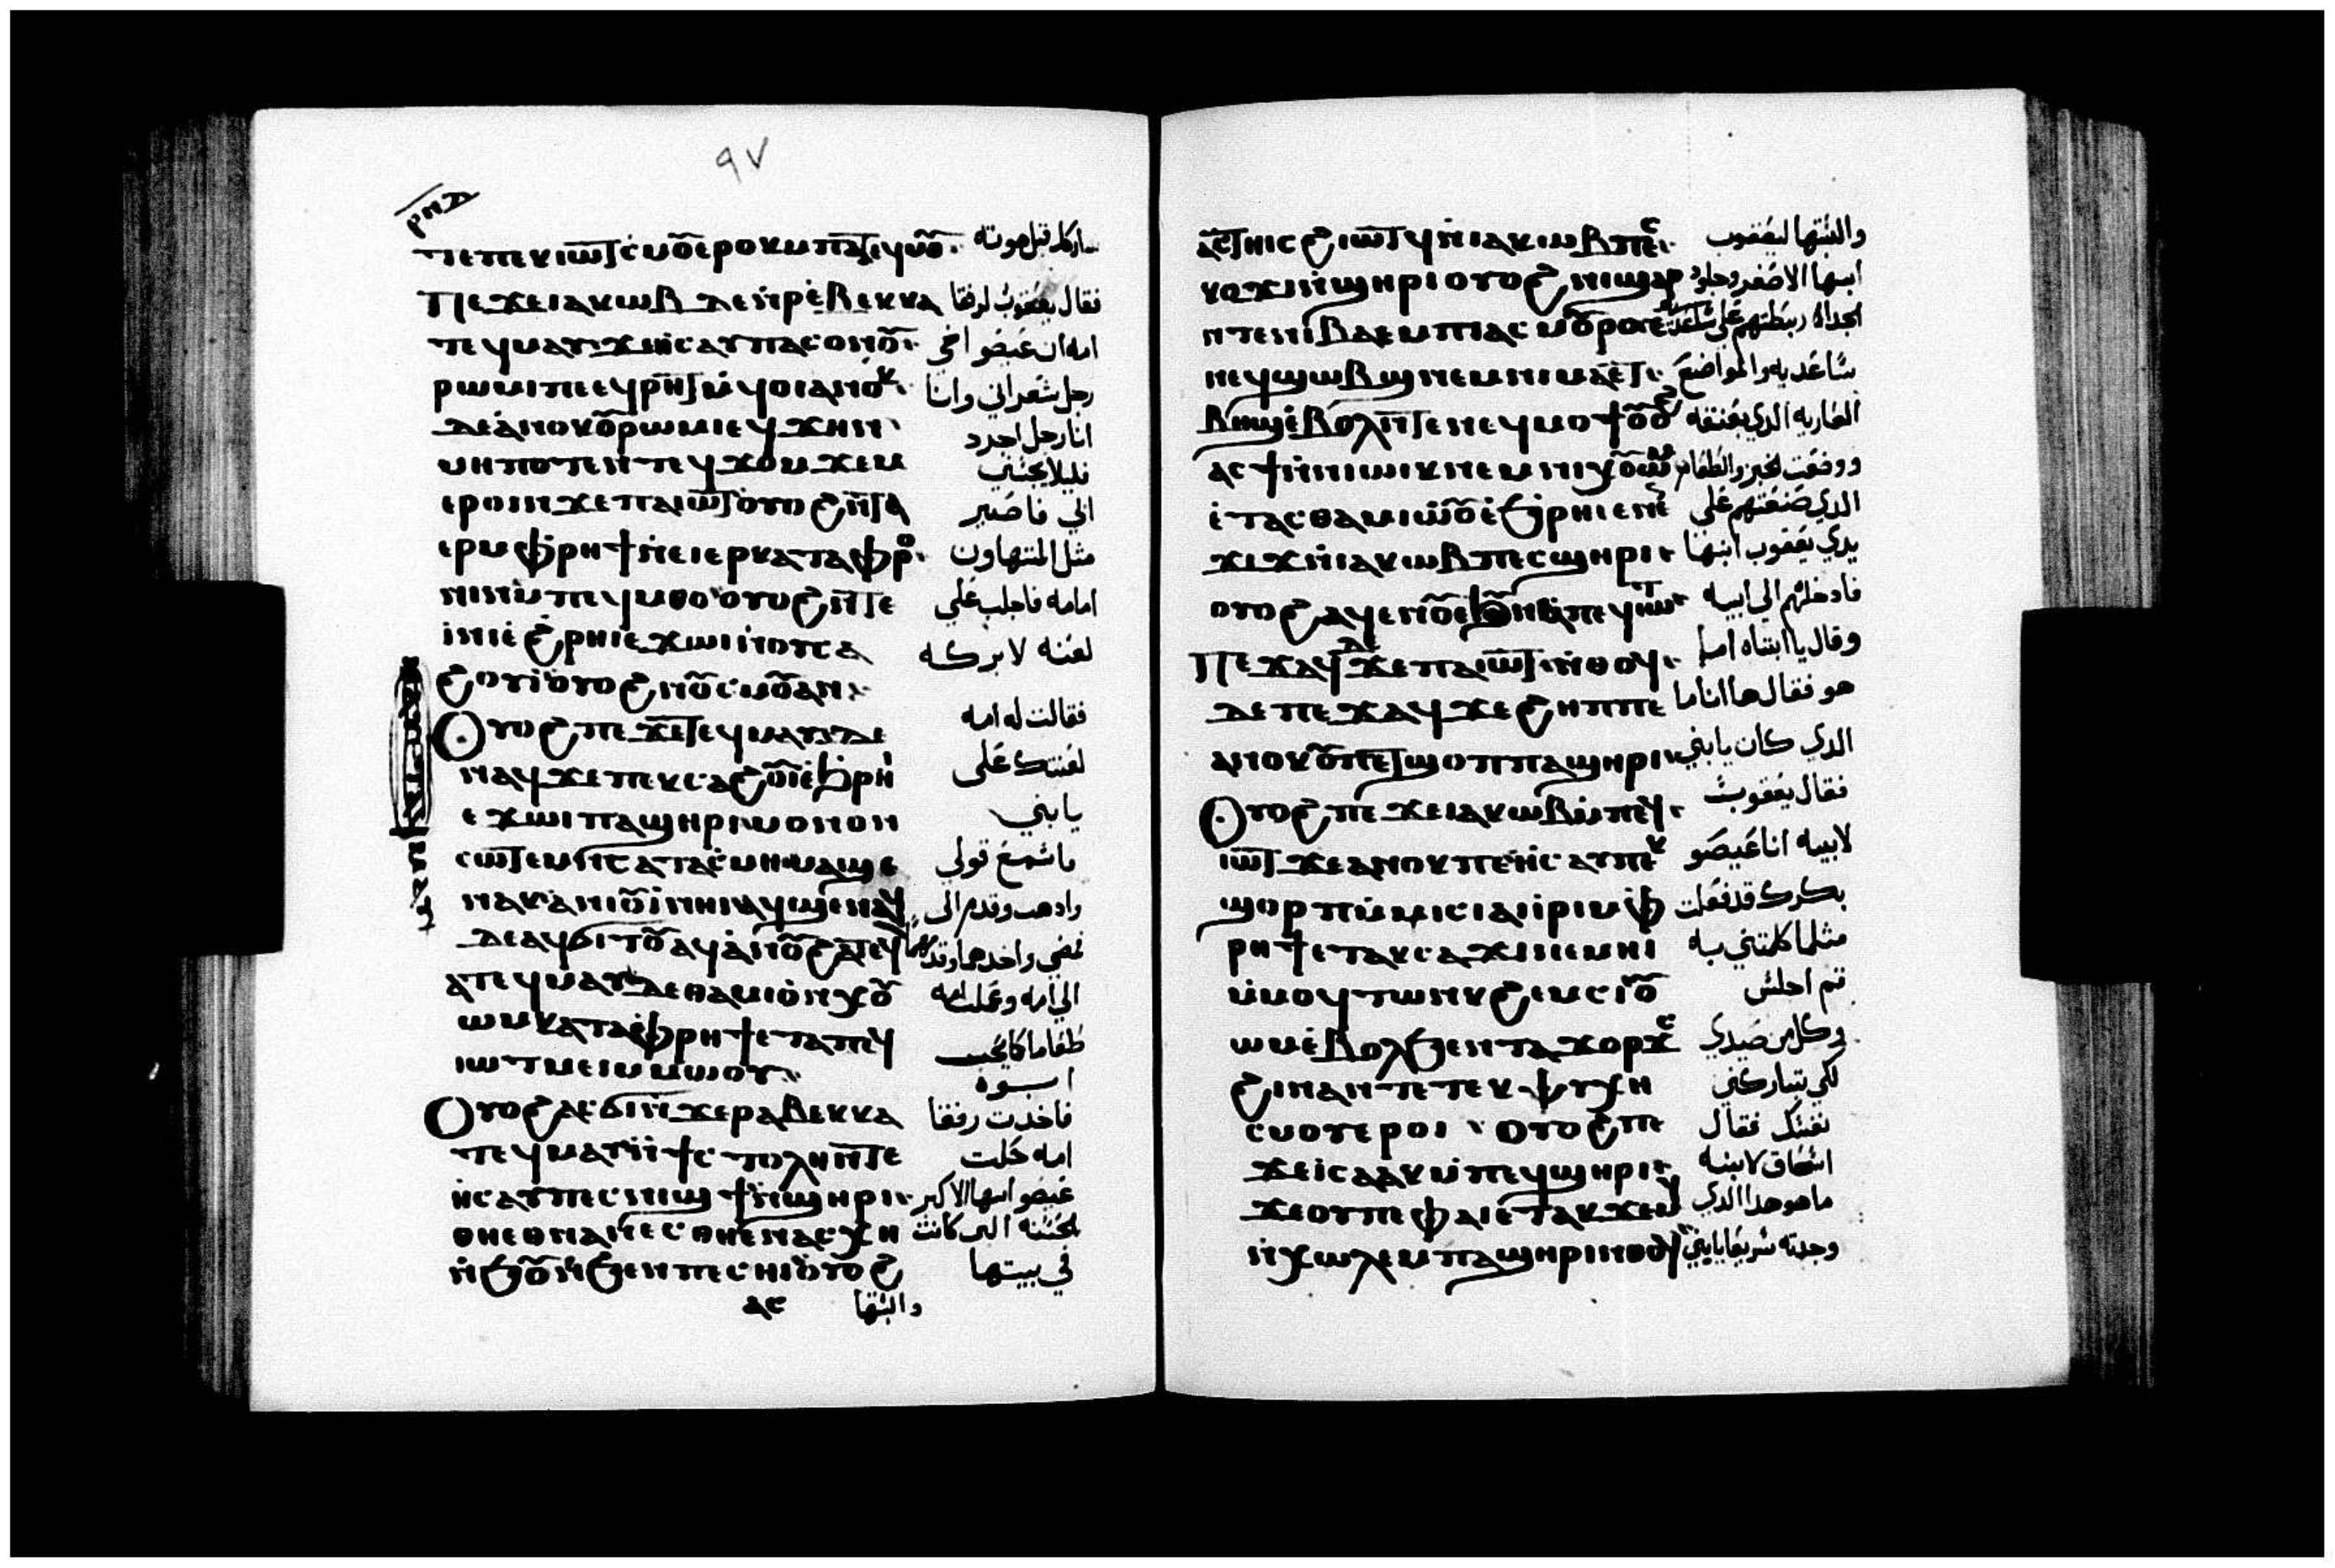 ⲣⲛⲇ
٩٧
ⲡⲉⲡⲉⲕⲓⲱ̅ⲧ̅ⲥⲙⲟ̅ⲉⲣⲟⲕⲙⲡⲁ̅ⲧ̅ϥⲙⲟ̅
يباركك قبل موته
ⲡⲉϫⲉⲓⲁⲕⲱⲃⲇⲉⲛ̀ⲣⲉ̀ⲃⲉⲕⲕⲁ
فقال يعقوب لرفقا
ⲧⲉϥⲙⲁⲩϫⲉⲏⲥⲁⲩⲡⲁⲥⲟⲛⲟ̅
امه ان عيصو اخي
ⲣⲱⲙⲓⲡⲉⲉϥⲣⲏ̅ⲧ̅ⲙ̀ϥⲟⲓⲁⲛⲟⲕ
رجل شعراني وانا
ⲇⲉⲁⲛⲟⲕⲟ̅ⲣⲱⲙⲓⲉϥϫⲏⲛ
انا رجل اجرد
ⲙⲏⲡⲟⲧⲉⲛⲧⲉϥϫⲟⲙϫⲉⲙ
ليلا يجسني
ⲉⲣⲟⲓⲛϫⲉⲡⲁⲓⲱ̅ⲧ̅ⲟⲩⲟϩⲛ̅ⲧ̅ⲁ
ابي فاصير
ⲉⲣⲙⲫⲣⲏϯⲛⲉⲓⲉⲣⲕⲁⲧⲁⲫⲣⲟ
مثل المتهاون
ⲛⲓⲛⲙ̀ⲡⲉϥⲙⲑⲟⲟⲩⲟϩⲛ̅ⲧ̅ⲉ
امامه فاجلب علي
ⲓⲛⲓⲉ̀ϩⲣⲏⲓⲉϫⲱⲓⲛ̀ⲟⲩⲥⲁ
لعنه لا بركه
ϩⲟⲩⲓ̀ⲟⲩⲟϩⲛⲟ̅ⲥⲙⲟ̅ⲁⲛ
ⲟⲩⲟϩⲡⲉϫⲉ̅ⲧ̅ⲉϥⲙⲁⲩⲇⲉ
فقالت له امه
ⲛⲁϥϫⲉⲡⲉⲕⲥⲁϩⲟⲩⲓⲉ̀ϩⲣⲏⲓ
لعنتك علي
ⲉϫⲱⲓⲡⲁϣⲏⲣⲓⲙⲟⲛⲟⲛ
يابني
ⲥⲱ̅ⲧ̅ⲉⲙⲛ̀ⲥⲁⲧⲁⲥⲙⲏⲙⲁϣⲉ
فاسمع قولي
ⲛⲁⲕⲁⲛⲓⲟ̅ⲓ̀ⲛⲏⲓⲁϥϣⲉⲛⲁϥ
واذهب وقدم الي
ⲇⲉⲁϥϭⲓⲧⲟ̅ⲁϥⲁ̀ⲛⲟ̅ϩⲁⲧⲉϥ
فمضي واخذهما وقدمهما
ⲁⲧⲉϥⲙⲁⲩⲇⲉⲑⲁⲙⲓⲟ̀ⲛϫⲟ̅
الي امه وعملت امه
ⲱⲙⲕⲁⲧⲁⲫⲣⲏϯⲉⲧⲁⲡⲉϥ
طعاما كما يحب
ⲓⲱⲧⲙⲉⲓⲙⲙⲱⲟⲩ
ابوه
ⲟⲩⲟϩⲁⲥϭⲓⲛ̀ϫⲉⲣⲁⲃⲉⲕⲕⲁ
فاخذت رفقا
ⲧⲉϥⲙⲁⲩⲛ̀ϯⲥⲧⲟⲗⲏⲛ̅ⲧ̅ⲉ
امه حلت
ⲏⲥⲁⲩⲡⲉⲥⲛⲓϣϯⲛ̀ϣⲏⲣⲓ
عيصو ابنها الاكبر
ⲑⲏⲉⲑⲛⲁⲛⲉⲥⲑⲏⲉⲛⲁⲥⲭⲏ
الحسنه التي كانت
ⲛ̀ϧⲟ̅ⲛ̀ϧⲉⲛⲡⲉⲥⲏⲓⲟⲩⲟϩ
في بيتها
ⲁⲥ
والبستها
ⲁⲥ̅ⲧ̅ⲏⲓⲥϩⲓⲱ̅ⲧ̅ϥⲛ̀ⲓⲁⲕⲱⲃⲡⲉⲥ
والبستها ليعقوب
ⲕⲟⲩϫⲓⲛ̀ϣⲏⲣⲓⲟⲩⲟϩⲛⲓϣⲁⲣ
ابنها الاصغر وجلود
ⲛⲧⲉⲛⲓⲃⲁⲉⲙⲡⲓⲁⲥⲙⲟ̅ⲣⲟⲩⲉ
الجداء ربطتهم علي
ⲛⲉϥϣⲱⲃϣⲛⲉⲙⲛⲓⲙⲁⲉ̅ⲧ̅
ساعديه والمواضع
ⲃⲏϣⲉ̀ⲃⲟⲗⲛ̅ⲧ̅ⲉⲛⲉϥⲙⲟϯ
العاريه الذي بعنقه
ⲁⲥϯⲛ̀ⲛⲓⲱⲓⲕⲛⲉⲙⲛⲓϫⲟ̅ⲱⲙ
ووضعت الخبز والطعام
ⲉ̀ⲧⲁⲥⲑⲁⲙⲓⲱⲟ̅ⲉ̀ϧⲣⲏⲓⲉⲛⲉ
الذي صنعتهم علي
ϫⲓϫⲛ̀ⲓⲁⲕⲱⲃⲡⲉⲥϣⲏⲣⲓ
يدي يعقوب ابنها
ⲟⲩⲟϩⲁϥⲉⲛⲟ̅ⲉ̀ϧⲟⲩⲛⲙ̀ⲡⲉϥⲓⲱⲧ
فادخلهم الي ابيه
ⲡⲉϫⲁϥⲇⲉϫⲉⲡⲁⲓⲱ̅ⲧ̅ⲛ̀ⲑⲟϥ
وقال يا ابتاه اما
ⲇⲉⲡⲉϫⲁϥϫⲉϩⲏⲡⲡⲉ
هو فقال ها انا ما
ⲁⲛⲟⲕⲟ̅ⲡⲉ̅ⲧ̅ϣⲟⲡⲡⲁϣⲏⲣⲓ
الذي كان يابني
ⲟⲩⲟϩⲡⲉϫⲉⲓⲁⲕⲱⲃⲙ̀ⲡⲉϥ
فقال يعقوب
ⲓⲱ̅ⲧ̅ϫⲉⲁⲛⲟⲕⲡⲉⲏ̀ⲥⲁⲩⲡⲉⲕ
لابيه انا عيصو
ϣⲟⲣⲡⲙ̀ⲙⲓⲥⲓⲁⲓⲣⲓⲙ̀ⲫ
بكرك قد فعلت
ⲣⲏϯⲉⲧⲁⲕⲥⲁϫⲓⲛⲉⲙⲏⲓ
مثلما كلمتني به
ⲙ̀ⲙⲟϥⲧⲱⲛⲕϩⲉⲙⲥⲓⲟ̅
قم اجلس
ⲱⲙⲉ̀ⲃⲟⲗϧⲉⲛⲧⲁϫⲟⲣϫⲥ
وكل من صيدي
ϩⲓⲛⲁⲛⲧⲉⲧⲉⲕⲯⲩⲭⲏ
لكي تباركني
ⲥⲙⲟⲩⲉⲣⲟⲓ ⲟⲩⲟϩⲡⲉ
نفسك فقال
ϫⲉⲓⲥⲁⲁⲕⲙ̀ⲡⲉϥϣⲏⲣⲓ
اسحاق لابنه
ϫⲉⲟⲩⲡⲉⲫⲁⲓⲉⲧⲁⲕϫⲉⲙ
ما هو هذا الذي
ⲛ̀ⲭⲱⲗⲉⲙⲡⲁϣⲏⲣⲓⲛⲑⲟϥ
وجدته سريعا يابني